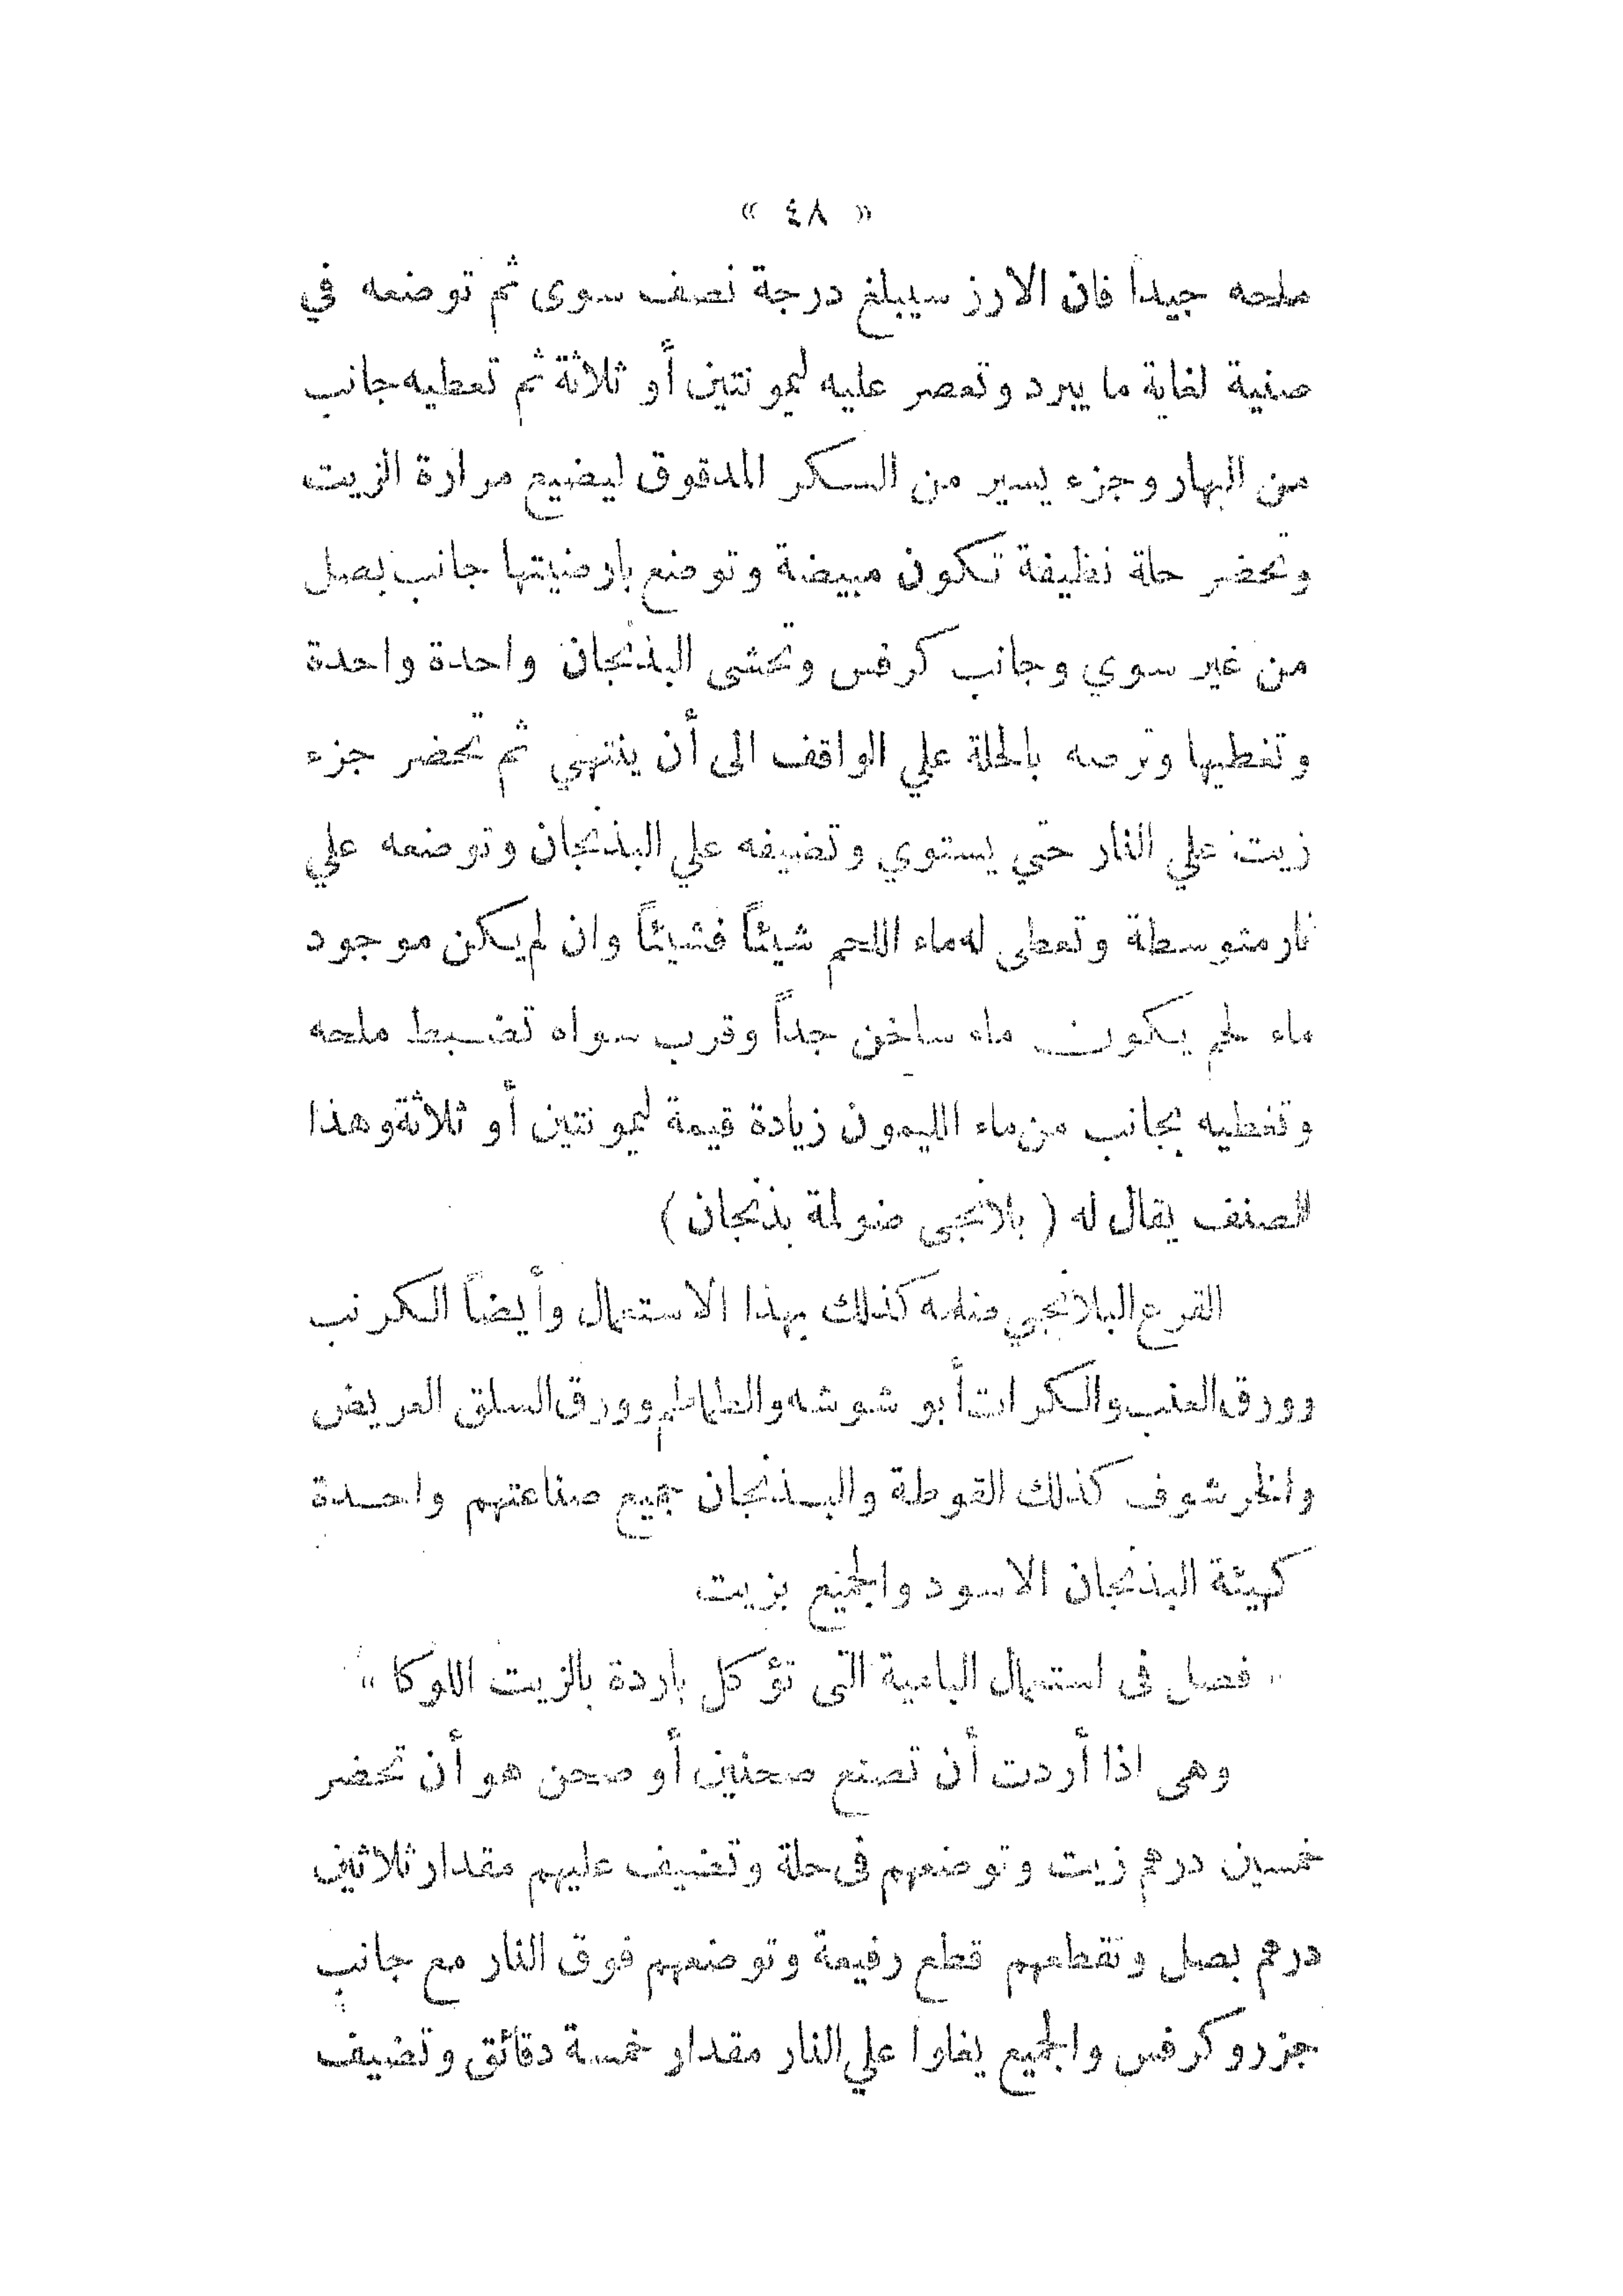 « ٤٨ »
ملحه جيداً فان الارز سيبلغ درجة نصف سوى ثم توضعه في
صنية لغاية ما يبرد وتعصر عليه ليمونتين أو ثلاثة ثم تعطيه جانب
من البهار وجزء يسير من السكر المدقوق ليضيع مرارة الزيت
وتحضر حلة نظيفة تكون مبيضة وتوضع بارضيتها جانب بصل
من غير سوي وجانب كرفس وتحشى البذنجان واحدة واحدة
وتغطيها وترصه بالحلة علي الواقف الى أن ينتهي ثم تحضر جزء
زيت علي النار حتي يستوي وتضيفه علي البذنجان وتوضعه علي
نار متوسطة وتعطى له ماء اللحم شيئاً فشيئاً وان لم يكن موجود
ماء لحم يكون ماء ساخن جداً وقرب سواه تضبط ملحه
وتغطيه بجانب من ماء الليمون زيادة قيمة ليمونتين أو ثلاثة وهذا
الصنف يقال له ( بلانجى ضولمة بذنجان )
القرع البلانجي مثله كذلك بهذا الاستعمال وأيضاً الكرنب
وورق العنب والكرات أبو شوشه والطماطم وورق السلق العريض
والخرشوف كذلك القوطة والبذنجان جميع صناعتهم واحدة
كهيئة البذنجان الاسود والجميع بزيت
« فصل فى استعمال البامية التى تؤكل باردة بالزيت اللوكا »
وهى اذا أردت أن تصنع صحنين أو صحن هو أن تحضر
خمسين درهم زيت وتوضعهم فى حلة وتضيف عليهم مقدار ثلاثين
درهم بصل وتقطعهم قطع رفيعة وتوضعهم فوق النار مع جانب
جزر وكرفس والجميع يغلوا علي النار مقدار خمسة دقائق وتضيف